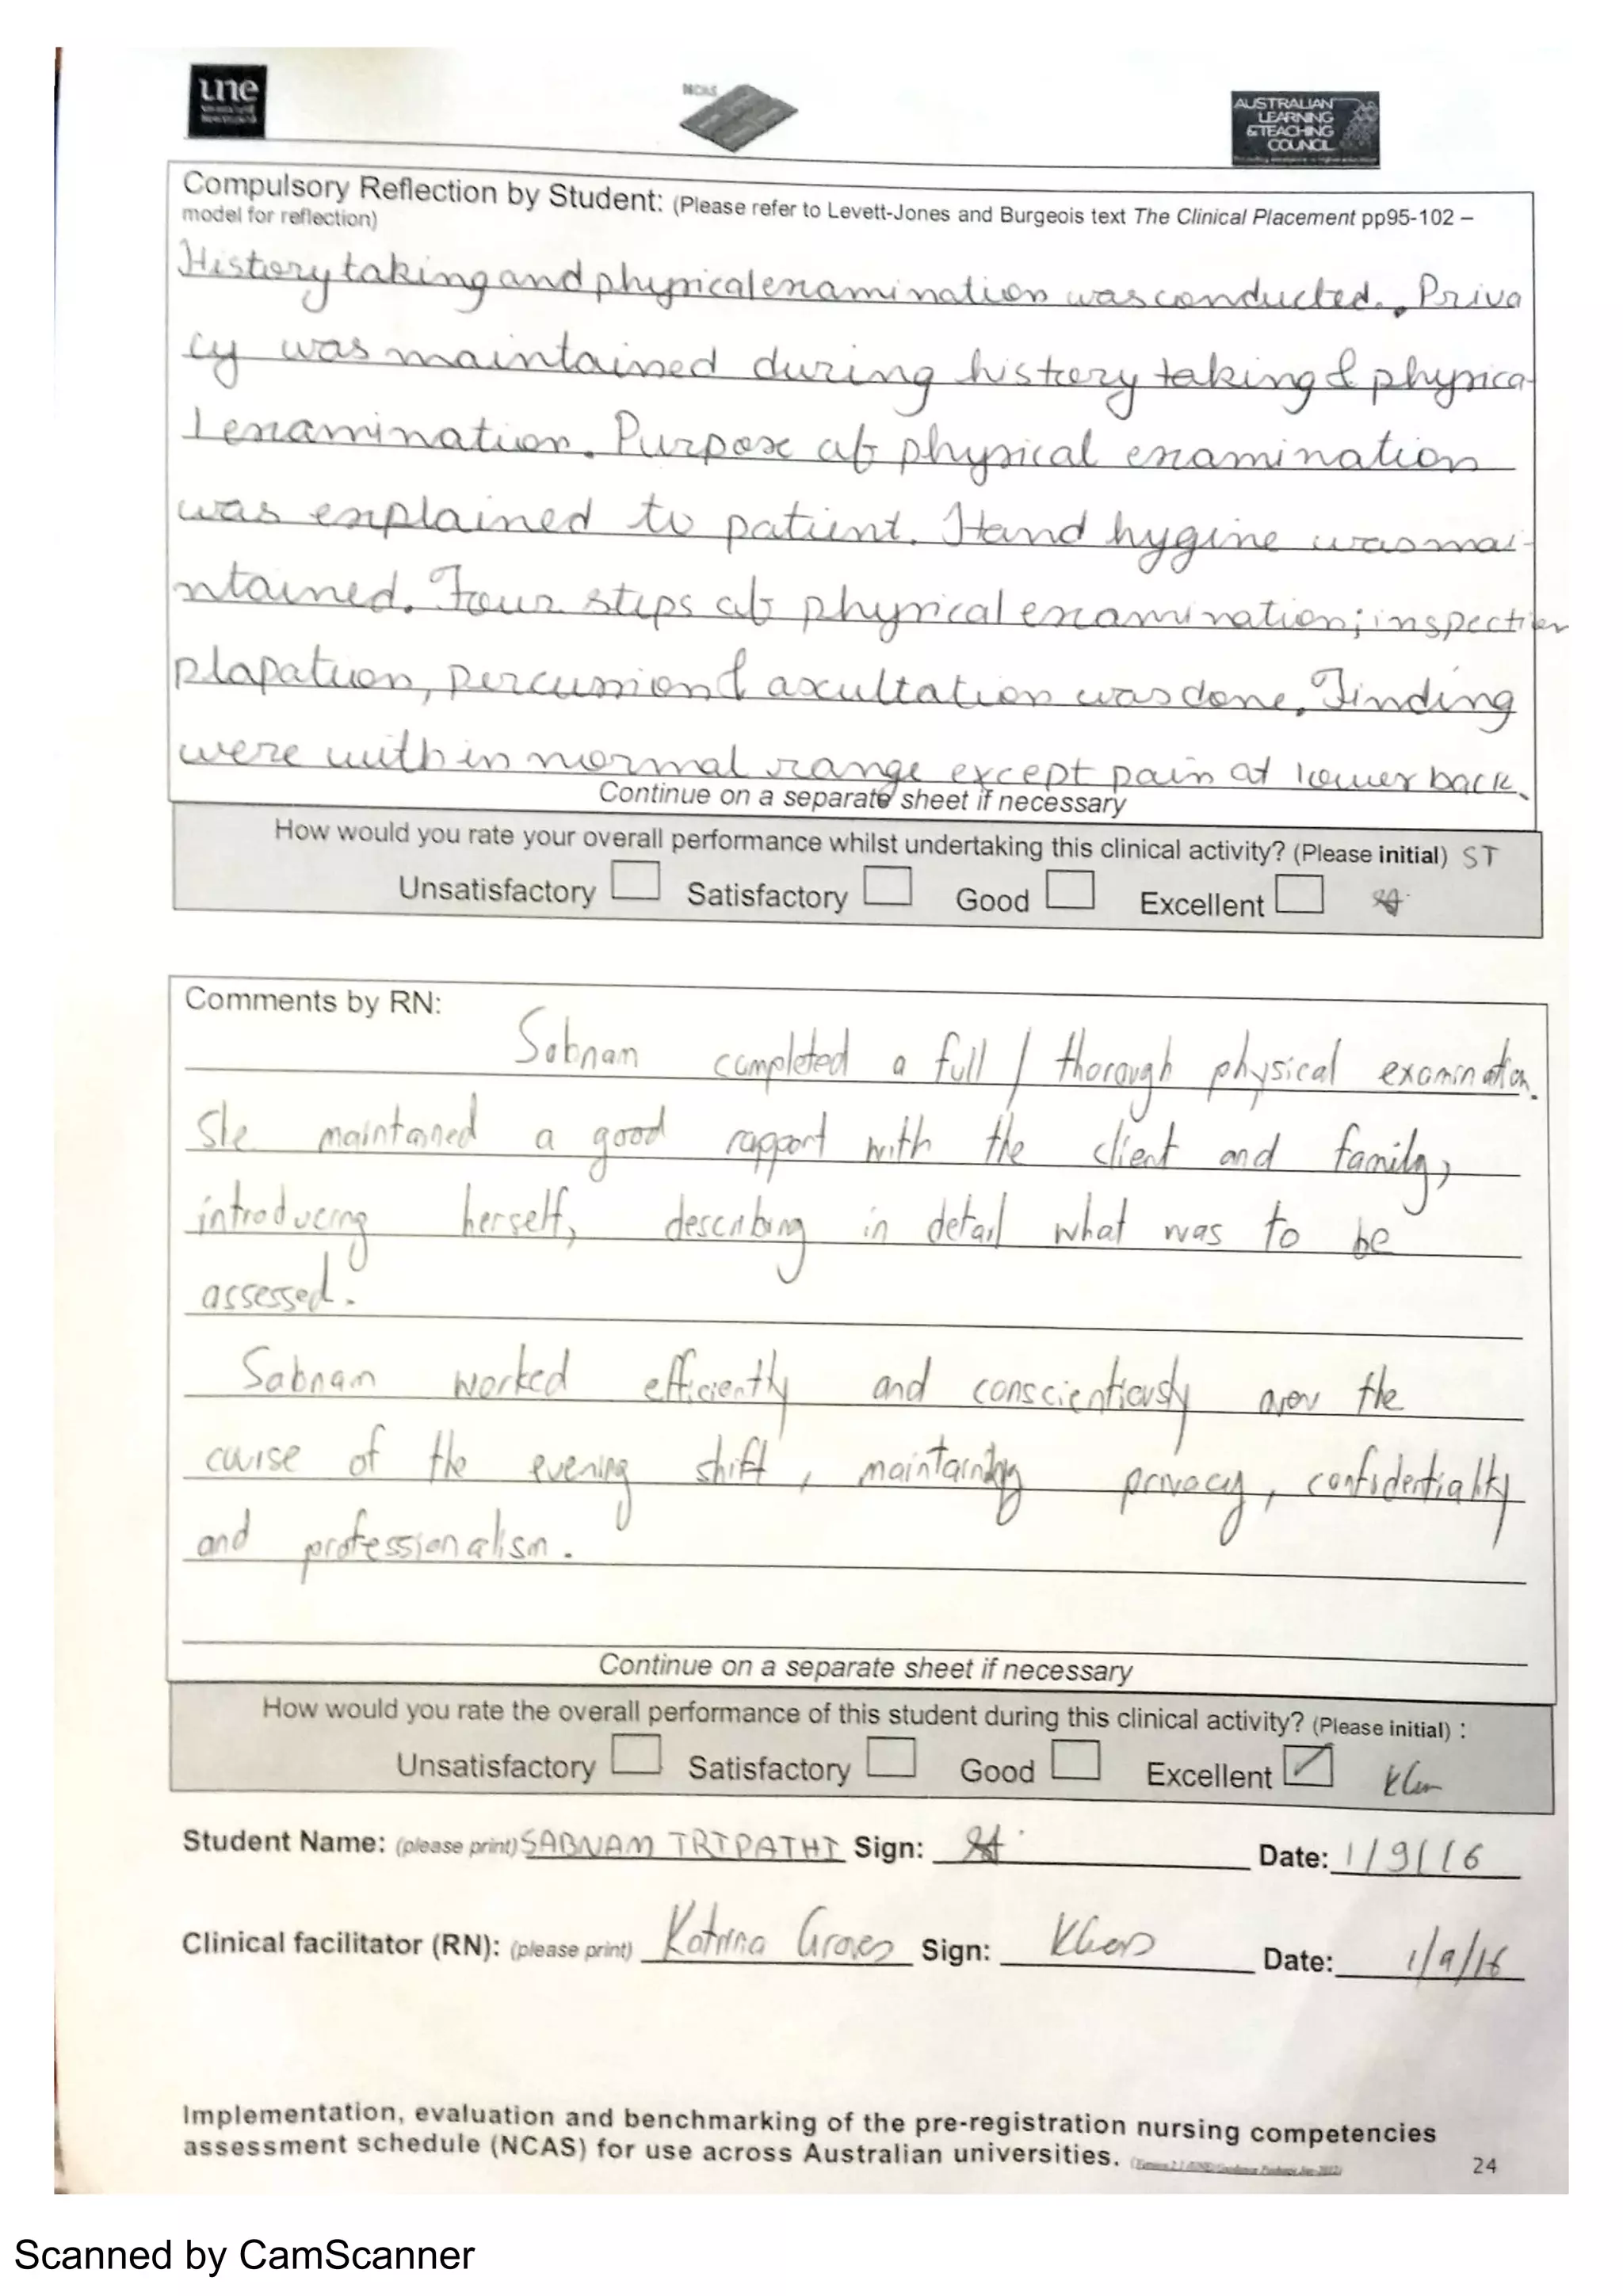 une
NCAS
AUSTRALIAN
LEARNING
&TEACHING
COUNCIL
Compulsory Reflection by Student: (Please refer to Levett-Jones and Burgeois text The Clinical Placement pp95-102 –
model for reflection)
History taking and physical examination was conducted. Priva
cy was maintained during history taking & physica
l examination. Purpose of physical examination
was explained to patient. Hand hygine was mai-
ntained. Four steps of physical examination; inspection
plapation, percussion & ascultation was done. Finding
were with in normal range except pain at lower back.
Continue on a separate sheet if necessary
How would you rate your overall performance whilst undertaking this clinical activity? (Please initial) ST
Unsatisfactory Satisfactory Good Excellent
Comments by RN:
Sabnam completed a full / thorough physical examination.
She maintained a good rapport with the client and family,
introducing herself, describing in detail what was to be
assessed.
Sabnam worked efficiently and conscientiously over the
course of the evening shift, maintaining privacy, confidentiality
and professionalism.
Continue on a separate sheet if necessary
How would you rate the overall performance of this student during this clinical activity? (Please initial) :
Unsatisfactory Satisfactory Good Excellent
Student Name: (please print) SABNAM TRIPATHI Sign: Date: 1/9/16
Clinical facilitator (RN): (please print) Katrina Graves Sign: Date: 1/9/16
Implementation, evaluation and benchmarking of the pre-registration nursing competencies
assessment schedule (NCAS) for use across Australian universities.
24
Scanned by CamScanner